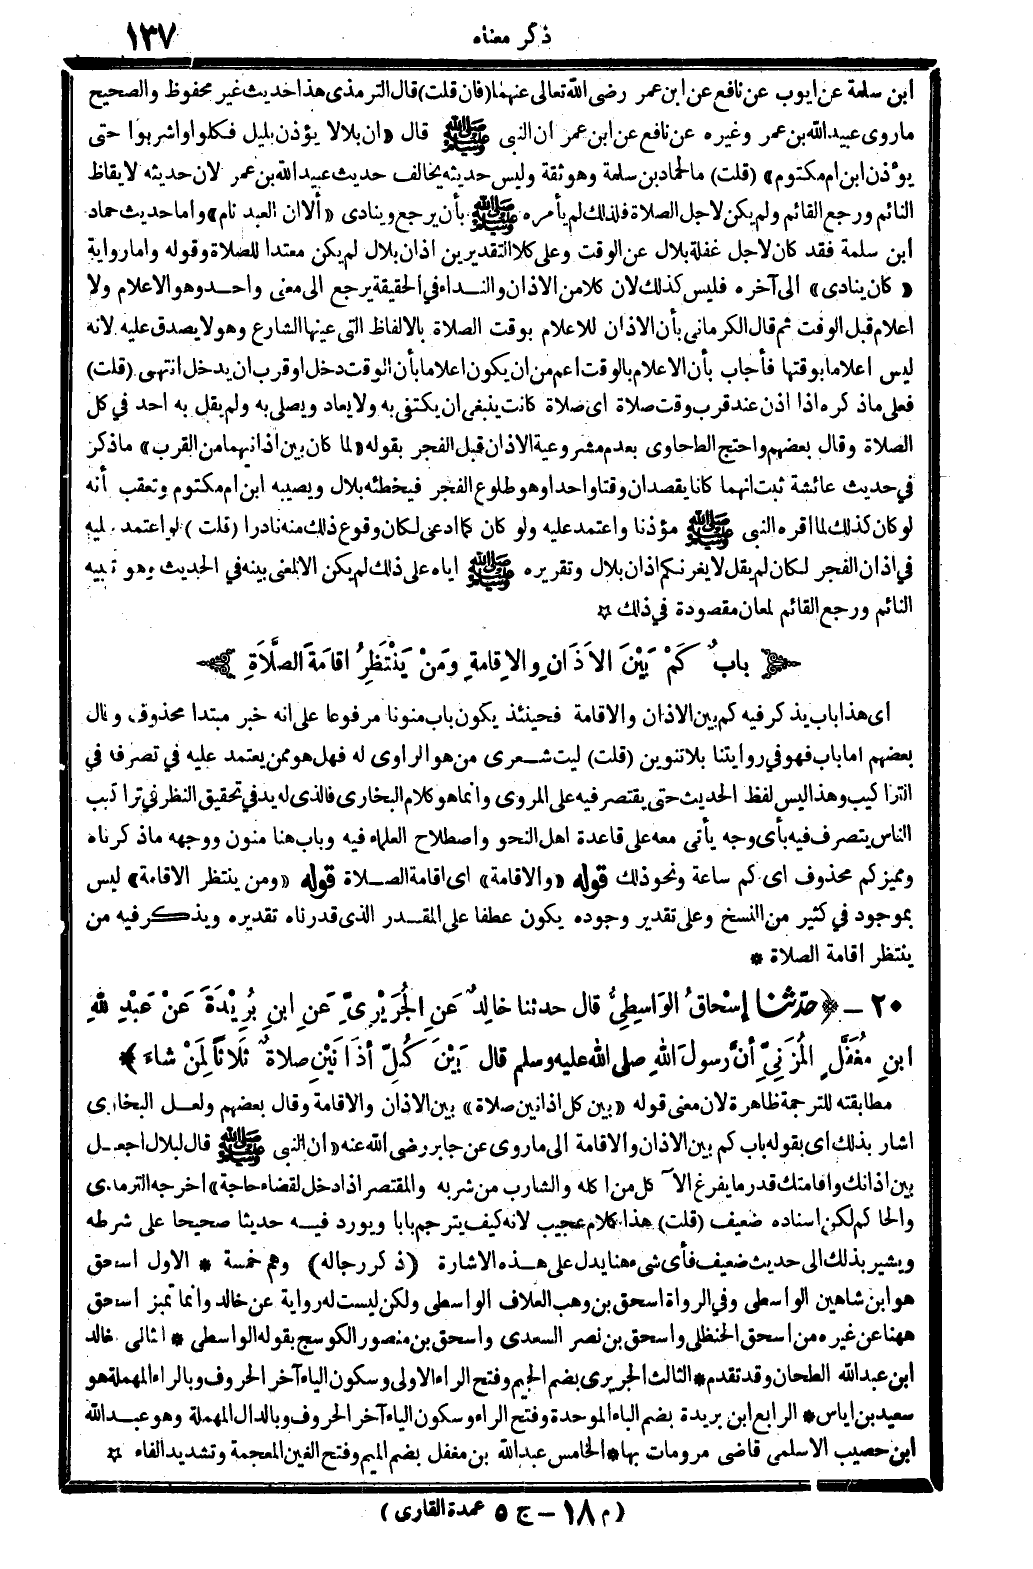 ذكر معناه ١٣٧
ابن سلمة عن ايوب عن نافع عن ابن عمر رضى الله تعالى عنهما (فان قلت) قال الترمذى هذا حديث غير محفوظ والصحيح
ماروى عبيد الله بن عمر وغيره عن نافع عن ابن عمر ان النبى ﷺ قال «ان بلالا يؤذن بليل فكلوا واشربوا حتى
يؤذن ابن ام مكتوم» (قلت) ما لحماد بن سلمة وهو ثقة وليس حديثه يخالف حديث عبيد الله بن عمر لان حديثه لايقاظ
النائم ورجع القائم ولم يكن لاجل الصلاة فلذلك لم يأمره ﷺ بأن يرجع وينادى «ألا ان العبد نام» واما حديث حماد
ابن سلمة فقد كان لاجل غفلة بلال عن الوقت وعلى كلا التقديرين اذان بلال لم يكن معتدا للصلاة وقوله واما رواية
«كان ينادى» الى آخره فليس كذلك لان كلا من الاذان والنداء فى الحقيقة يرجع الى معنى واحد وهو الاعلام ولا
اعلام قبل الوقت ثم قال الكرمانى بأن الاذان للاعلام بوقت الصلاة بالالفاظ التى عينها الشارع وهو لا يصدق عليه لانه
ليس اعلاما بوقتها فأجاب بأن الاعلام بالوقت اعم من ان يكون اعلاما بأن الوقت دخل او قرب ان يدخل انتهى (قلت)
فعلى ماذكره اذا اذن عند قرب وقت صلاة اى صلاة كانت ينبغى ان يكتفى به ولا يعاد ويصلى به ولم يقل به احد فى كل
الصلاة وقال بعضهم واحتج الطحاوى بعدم مشروعية الاذان قبل الفجر بقوله «لما كان بين اذانيهما من القرب» ماذكر
فى حديث عائشة ثبت انهما كانا يقصدان وقتا واحدا وهو طلوع الفجر فيخطئه بلال ويصيبه ابن ام مكتوم وتعقب أنه
لو كان كذلك لما اقره النبى ﷺ مؤذنا واعتمد عليه ولو كان كما ادعى لكان وقوع ذلك منه نادرا (قلت) لو اعتمد عليه
فى اذان الفجر لكان لم يقل لا يغرنكم اذان بلال وتقريره ﷺ اياه على ذلك لم يكن الا لمعنى بينه فى الحديث وهو تنبيه
النائم ورجع القائم لمعان مقصودة فى ذلك ☆
بابٌ كَمْ بَيْنَ الاَذَانِ والاِقامةِ ومَنْ يَنْتَظِرُ اقامَةَ الصَّلَاةِ
اى هذا باب يذكر فيه كم بين الاذان والاقامة فحينئذ يكون باب منونا مرفوعا على انه خبر مبتدا محذوف وقال
بعضهم اما باب فهو فى روايتنا بلا تنوين (قلت) ليت شعرى من هو الراوى له فهل هو ممن يعتمد عليه فى تصرفه فى
التراكيب وهذا ليس لفظ الحديث حتى يقتصر فيه على المروى وانما هو كلام البخارى فالذى له يد فى تحقيق النظر فى تراكيب
الناس يتصرف فيه بأى وجه يأتى معه على قاعدة اهل النحو واصطلاح العلماء فيه وباب هنا منون ووجهه ماذكرناه
ومميز كم محذوف اى كم ساعة ونحو ذلك قوله «والاقامة» اى اقامة الصلاة قوله «ومن ينتظر الاقامة» ليس
بموجود فى كثير من النسخ وعلى تقدير وجوده يكون عطفا على المقدر الذى قدرناه تقديره ويذكر فيه من
ينتظر اقامة الصلاة *
٢٠ ـ ﴿حدّثنا إسْحاقُ الوَاسِطِىُّ قال حدثنا خالدٌ عَنِ الجُرَيْرِىِّ عَنِ ابنِ بُرَيْدَةَ عَنْ عَبْدِ اللهِ
ابنِ مُغَفَّلٍ المُزَنِىِّ أنَّ رسولَ اللهِ صلى الله عليه وسلم قال بَيْنَ كُلِّ أذَانَيْنِ صلاةٌ ثَلاَثاً لِمَنْ شاءَ﴾
مطابقته للترجمة ظاهرة لان معنى قوله «بين كل اذانين صلاة» بين الاذان والاقامة وقال بعضهم ولعل البخارى
اشار بذلك اى بقوله باب كم بين الاذان والاقامة الى ماروى عن جابر رضى الله عنه «ان النبى ﷺ قال لبلال اجعل
بين اذانك واقامتك قدر ما يفرغ الآكل من اكله والشارب من شربه والمقتصر اذا دخل لقضاء حاجة» اخرجه الترمذى
والحاكم لكن اسناده ضعيف (قلت) هذا كلام عجيب لانه كيف يترجم بابا ويورد فيه حديثا صحيحا على شرطه
ويشير بذلك الى حديث ضعيف فأى شىء هنا يدل على هذه الاشارة (ذكر رجاله) وهم خمسة * الاول اسحق
هو ابن شاهين الواسطى وفى الرواة اسحق بن وهب العلاف الواسطى ولكن ليست له رواية عن خالد وانما تميز اسحق
ههنا عن غيره من اسحق الحنظلى واسحق بن نصر السعدى واسحق بن منصور الكوسج بقوله الواسطى * الثانى خالد
ابن عبد الله الطحان وقد تقدم * الثالث الجريرى بضم الجيم وفتح الراء الاولى وسكون الياء آخر الحروف وبالراء المهملة هو
سعيد بن اياس * الرابع ابن بريدة بضم الباء الموحدة وفتح الراء وسكون الياء آخر الحروف وبالدال المهملة وهو عبد الله
ابن حصيب الاسلمى قاضى مرو مات بها * الخامس عبد الله بن مغفل بضم الميم وفتح الغين المعجمة وتشديد الفاء ☆
(م ١٨ ـ ج ٥ عمدة القارى)